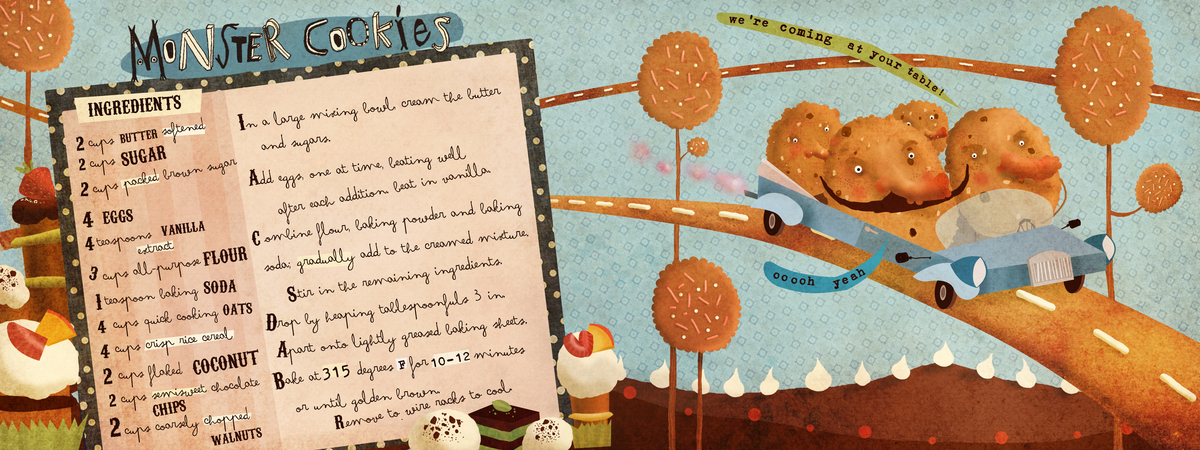 MONSTER COOKIES
INGREDIENTS
2 cups BUTTER softened
2 cups SUGAR
2 cups packed brown sugar
4 EGGS
4 teaspoons VANILLA
extract
3 cups all-purpose FLOUR
1 teaspoon baking SODA
4 cups quick cooking OATS
4 cups crisp rice cereal
2 cups flaked COCONUT
2 cups semisweet chocolate
CHIPS
2 cups coarsely chopped
WALNUTS
In a large mixing bowl cream the butter
and sugars.
Add eggs, one at time, beating well
after each addition beat in vanilla
Combine flour, baking powder and baking
soda; gradually add to the creamed mixture.
Stir in the remaining ingredients.
Drop by heaping tablespoonfuls 3 in
Apart onto lightly greased baking sheets.
Bake at 315 degrees F for 10-12 minutes
or until golden brown.
Remove to wire racks to cool
we're coming at your table!
ooooh yeah